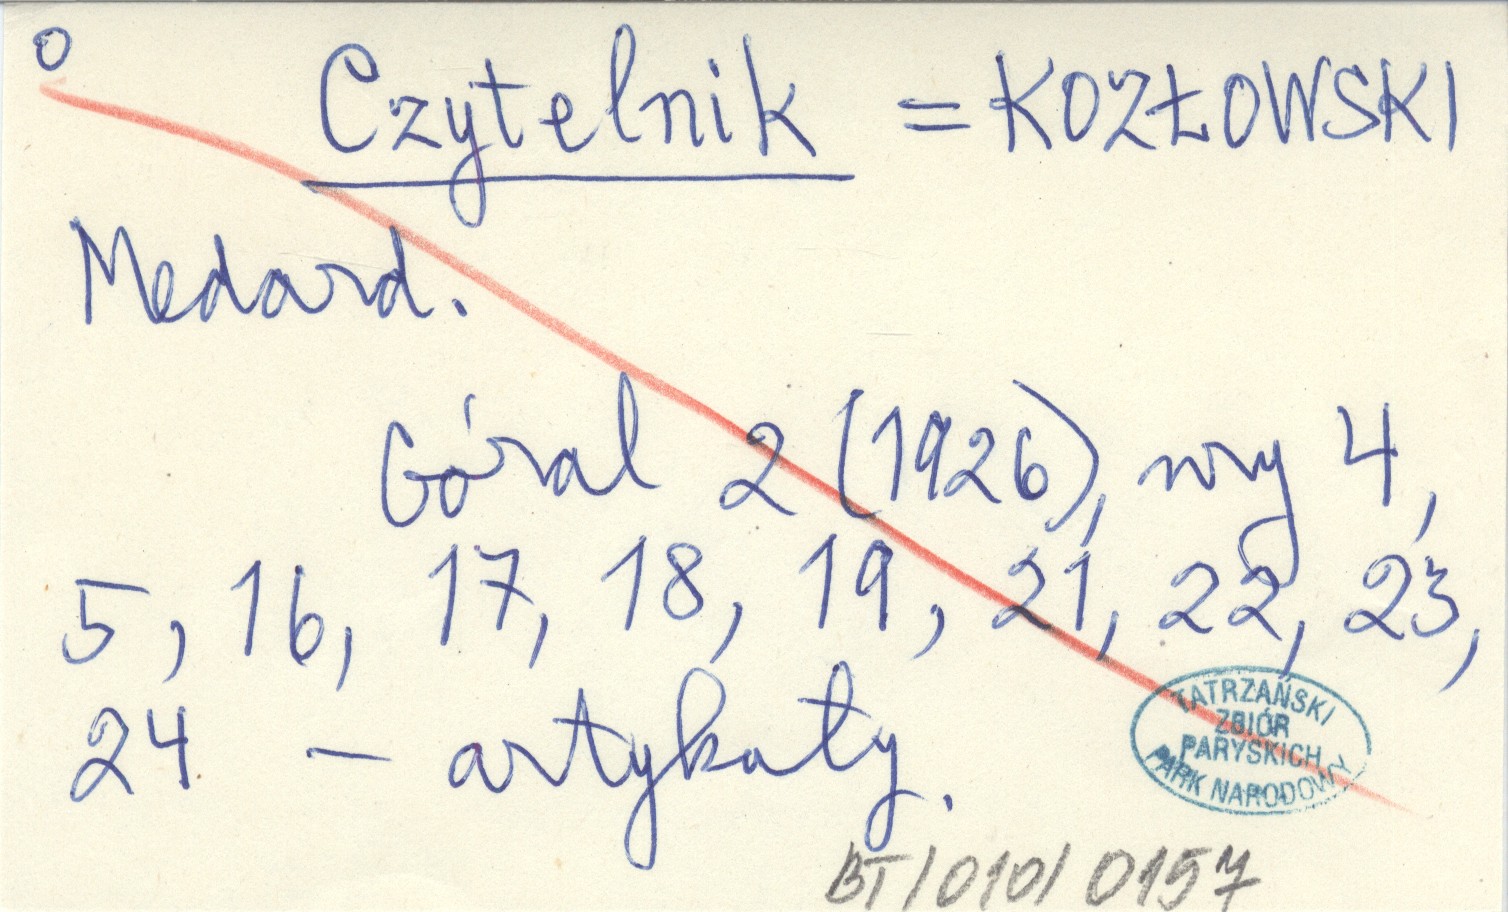 O
Czytelnik = KOZŁOWSKI
Medard.
Góral 2 (1926), nry 4,
5, 16, 17, 18, 19, 21, 22, 23,
24 – artykuły.
TATRZAŃSKI
ZBIÓR
PARYSKICH
PARK NARODOWY
BT/010/0157